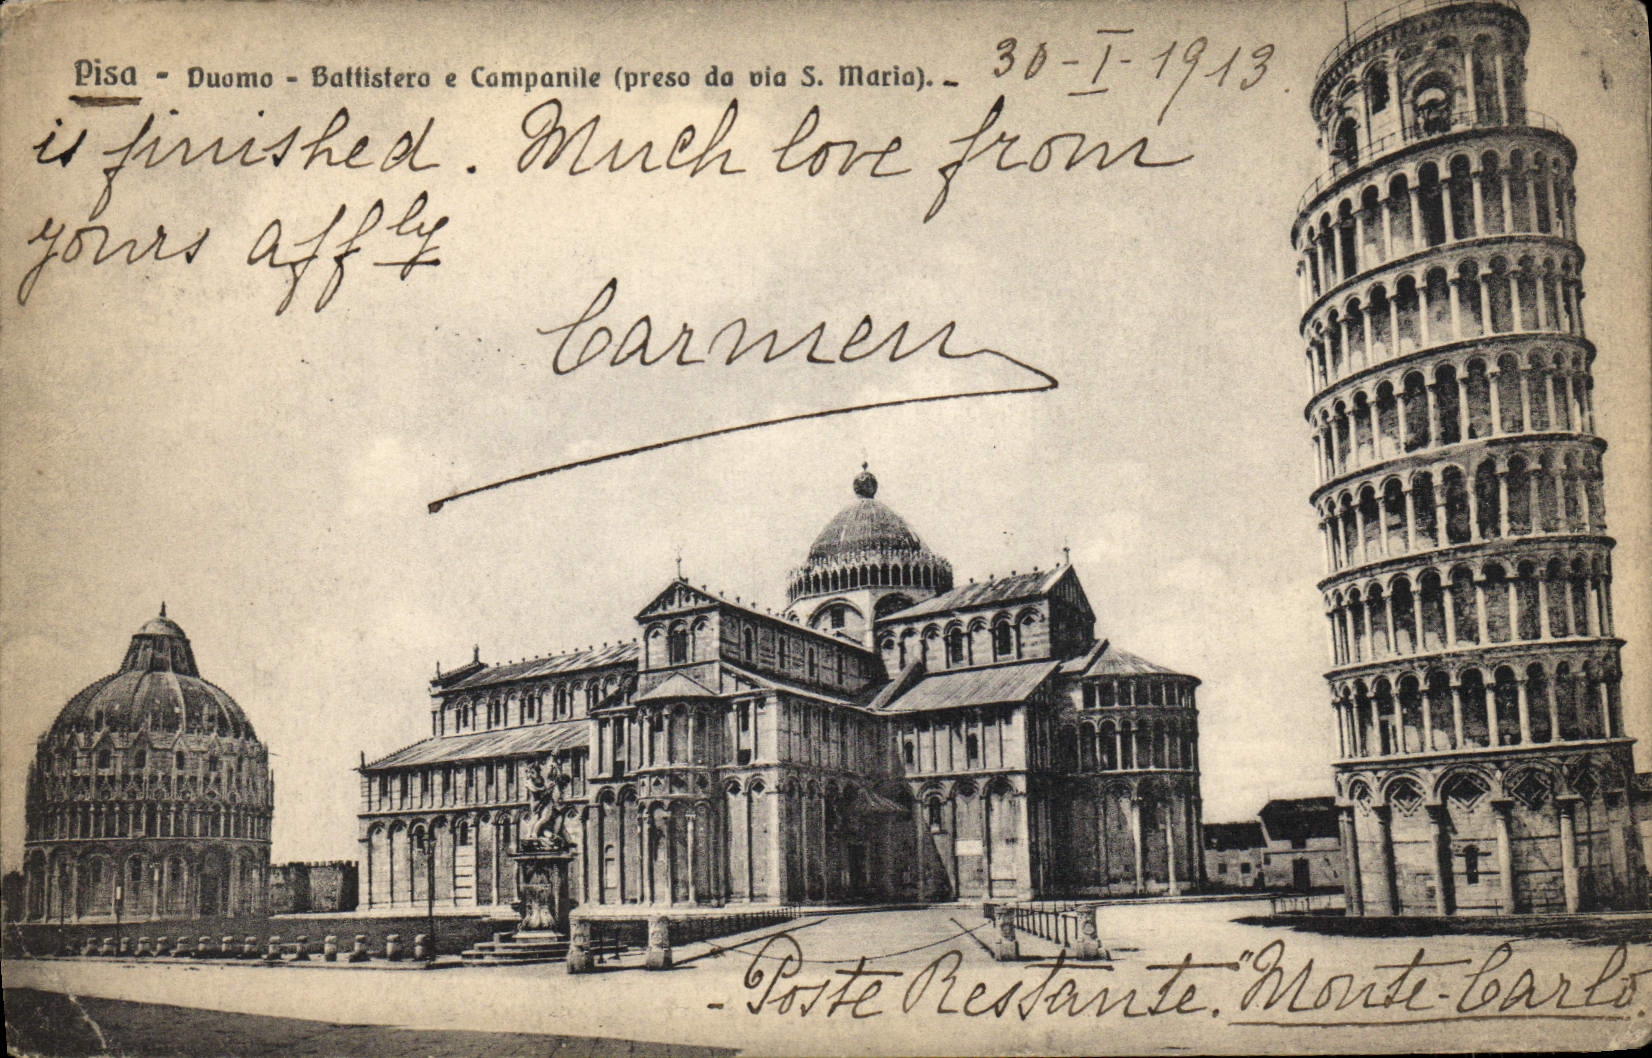 Pisa - Duomo - Battistero e Campanile (preso da via S. Maria). - 30-I-1913.
is finished. Much love from
yours affly
Carmen
- Poste Restante. "Monte-Carlo.